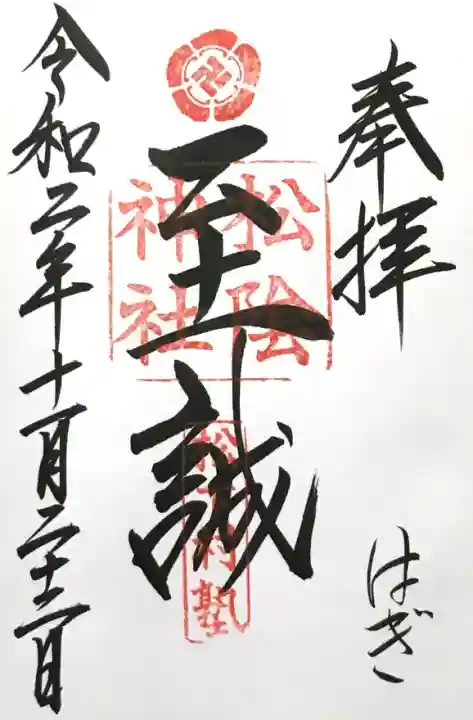 奉拝
はぎ
至誠
松陰
神社
松下村塾
令和二年十一月二十二日